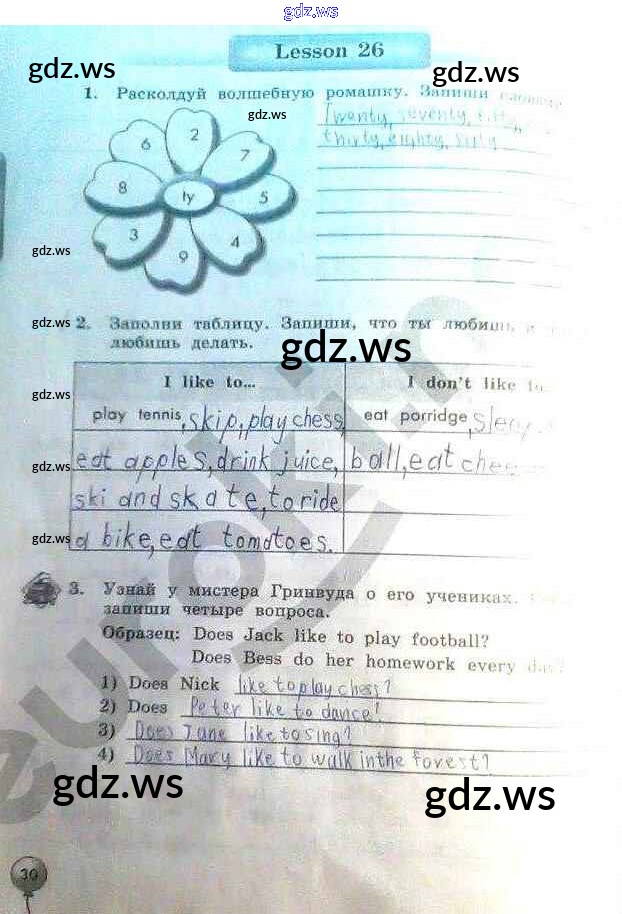 gdz.ws
Lesson 26
gdz.ws
gdz.ws
1. Расколдуй волшебную ромашку. Запиши
gdz.ws
Twenty, seventy, fifty,
thirty, eighty, sixty
6 2 7 8 ty 5 3 9 4
gdz.ws
gdz.ws
2. Заполни таблицу. Запиши, что ты любишь и
любишь делать.
gdz.ws
I like to... I don't like to
gdz.ws
play tennis, skip, play chess, eat porridge, sleep,
gdz.ws
eat apples, drink juice, ball, eat
ski and skate, to ride
gdz.ws
a bike, eat tomatoes.
3. Узнай у мистера Гринвуда о его учениках.
gdz.ws
запиши четыре вопроса.
Образец: Does Jack like to play football?
Does Bess do her homework every day?
1) Does Nick like to play chess?
2) Does Peter like to dance?
3) Does Jane like to sing?
4) Does Mary like to walk in the forest?
gdz.ws
gdz.ws
30